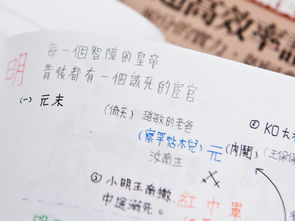 超高效率讀
明
每一個智障的皇帝
背後都有一個該死的宦官
(一) 元末
(倚天) 趙敏的老爸
(察罕帖木兒) 元 (內鬨)
汝南王
② KO
③ 小明王南撤
中途溺死。
紅巾軍